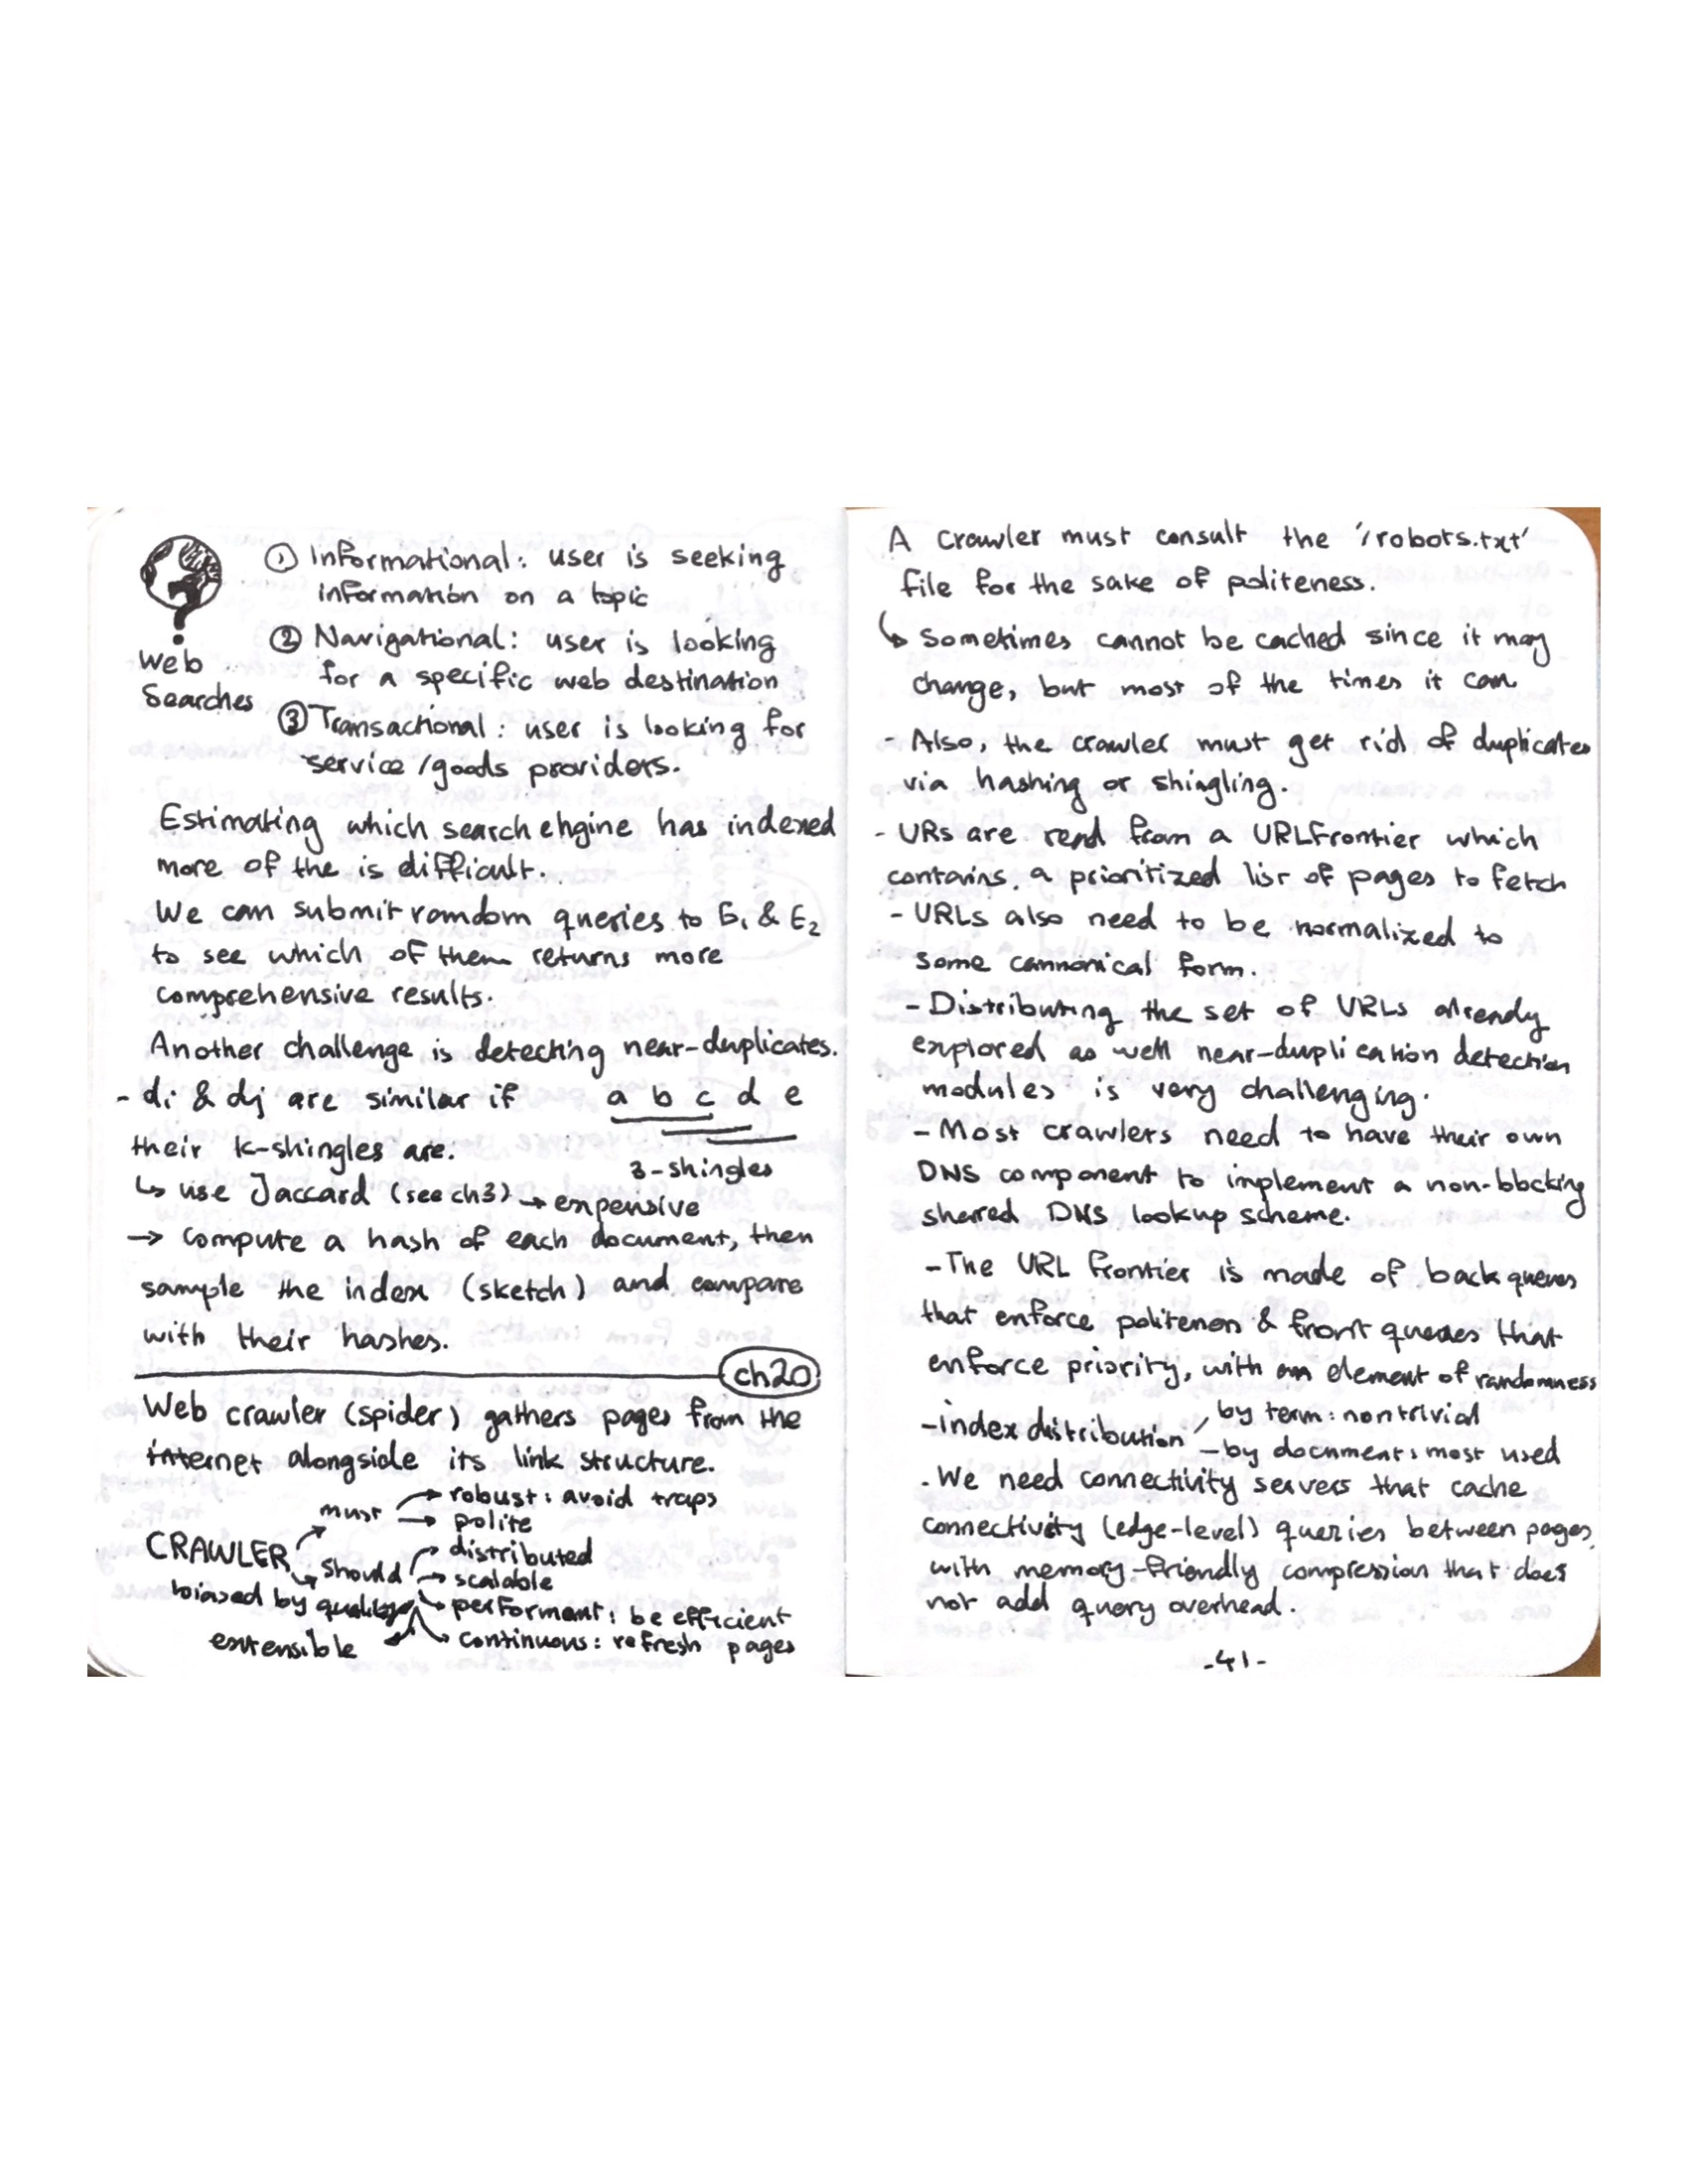 ① Informational: user is seeking
information on a topic
② Navigational: user is looking
for a specific web destination
③ Transactional: user is looking for
service/goods providers.
Web
Searches
Estimating which search engine has indexed
more of the is difficult.
We can submit random queries to E₁ & E₂
to see which of them returns more
comprehensive results.
Another challenge is detecting near-duplicates.
- di & dj are similar if
their k-shingles are:
a b c d e
3-shingles
↳ use Jaccard (see ch3) → expensive
→ compute a hash of each document, then
sample the index (sketch) and compare
with their hashes.
ch20
Web crawler (spider) gathers pages from the
internet alongside its link structure.
CRAWLER
must
→ robust: avoid traps
→ polite
should
→ distributed
→ scalable
→ performant: be efficient
→ continuous: refresh pages
biased by quality
extensible
A crawler must consult the '/robots.txt'
file for the sake of politeness.
↳ Sometimes cannot be cached since it may
change, but most of the times it can
- Also, the crawler must get rid of duplicates
via hashing or shingling.
- URs are read from a URLFrontier which
contains a prioritized list of pages to fetch
- URLs also need to be normalized to
some cannonical form.
- Distributing the set of URLs already
explored as well near-duplication detection
modules is very challenging.
- Most crawlers need to have their own
DNS component to implement a non-blocking
shared DNS lookup scheme.
- The URL frontier is made of back queues
that enforce politeness & front queues that
enforce priority, with an element of randomness
- index distribution
by term: nontrivial
- by document: most used
- We need connectivity servers that cache
connectivity (edge-level) queries between pages,
with memory-friendly compression that does
not add query overhead.
-41-